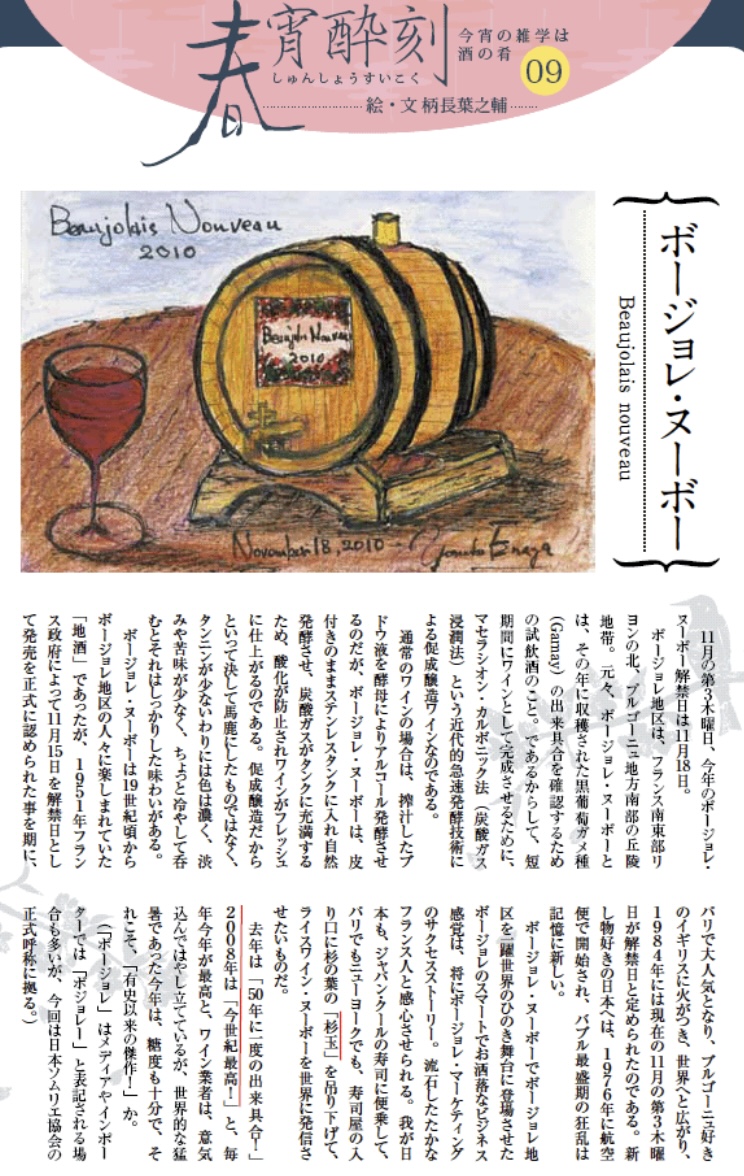 春宵酔刻
しゅんしょうすいこく
今宵の雑学は
酒の肴
09
絵・文 柄長葉之輔
ボージョレ・ヌーボー
Beaujolais nouveau
Beaujolais Nouveau
2010
Beaujolais Nouveau
2010
November 18, 2010
11月の第3木曜日、今年のボージョレ・
ヌーボー解禁日は11月18日。
ボージョレ地区は、フランス南東部リ
ヨンの北、ブルゴーニュ地方南部の丘陵
地帯。元々、ボージョレ・ヌーボーと
は、その年に収穫された黒葡萄ガメ種
(Gamay)の出来具合を確認するため
の試飲酒のこと。であるからして、短
期間にワインとして完成させるために、
マセラシオン・カルボニック法(炭酸ガス
浸潤法)という近代的急速発酵技術に
よる促成醸造ワインなのである。
通常のワインの場合は、搾汁したブ
ドウ液を酵母によりアルコール発酵させ
るのだが、ボージョレ・ヌーボーは、皮
付きのままステンレスタンクに入れ自然
発酵させ、炭酸ガスがタンクに充満する
ため、酸化が防止されワインがフレッシュ
に仕上がるのである。促成醸造だから
といって決して馬鹿にしたものではなく、
タンニンが少ないわりには色は濃く、渋
みや苦味が少なく、ちょっと冷やして呑
むとそれはしっかりした味わいがある。
ボージョレ・ヌーボーは19世紀頃から
ボージョレ地区の人々に楽しまれていた
「地酒」であったが、1951年フラン
ス政府によって11月15日を解禁日とし
て発売を正式に認められた事を期に、
パリで大人気となり、ブルゴーニュ好き
のイギリスに火がつき、世界へと広がり、
1984年には現在の11月の第3木曜
日が解禁日と定められたのである。新
し物好きの日本へは、1976年に航空
便で開始され、バブル最盛期の狂乱は
記憶に新しい。
ボージョレ・ヌーボーでボージョレ地
区を一躍世界のひのき舞台に登場させた
ボージョレのスマートでお洒落なビジネス
感覚は、将にボージョレ・マーケティング
のサクセスストーリー。流石したたかな
フランス人と感心させられる。我が日
本も、ジャパン・クールの寿司に便乗して、
パリでもニューヨークでも、寿司屋の入
り口に杉の葉の「杉玉」を吊り下げて、
ライスワイン・ヌーボーを世界に発信さ
せたいものだ。
去年は「50年に一度の出来具合!」
2008年は「今世紀最高!」と、毎
年今年が最高と、ワイン業者は、意気
込んではやし立てているが、世界的な猛
暑であった今年は、糖度も十分で、そ
れこそ、「有史以来の傑作!」か。
(「ボージョレ」はメディアやインポー
ターでは「ボジョレー」と表記される場
合も多いが、今回は日本ソムリエ協会の
正式呼称に拠る。)